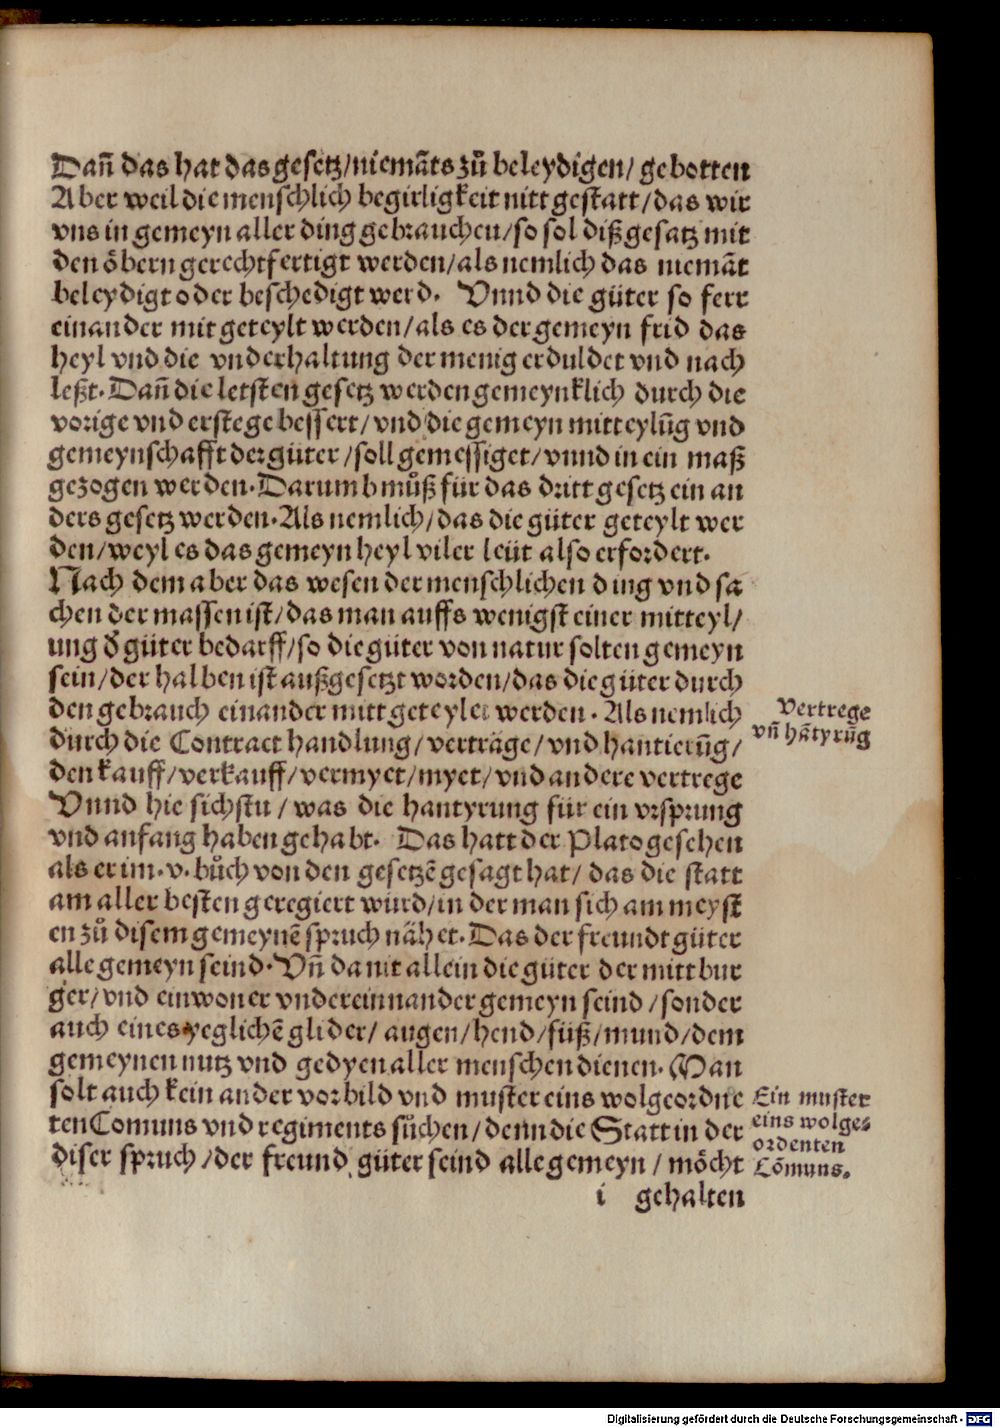 Dañ das hat das gesetz/niemãts zů beleydigen/ gebotten
Aber weil die menschlich begirligkeit nitt gestatt/das wir
vns in gemeyn aller ding gebrauchen/so sol diß gesatz mit
den öbern gerechtfertigt werden/als nemlich das niemãt
beleydigt oder beschedigt werd. Vnnd die güter so ferr
einander mitgeteylt werden/als es der gemeyn frid das
heyl vnd die vnderhaltung der menig erduldet vnd nach
leßt. Dañ die letsten gesetz werden gemeynklich durch die
vorige vnd erstege bessert/ vnd die gemeyn mitteylũg vnd
gemeynschafft der güter/soll gemessiget/vnnd in ein maß
gezogen werden. Darumb můß für das dritt gesetz ein an
ders gesetz werden. Als nemlich/das die güter geteylt wer
den/weyl es das gemeyn heyl viler leüt also erfordert.
Nach dem aber das wesen der menschlichen ding vnd sa
chen der massen ist/das man auffs wenigst einer mitteyl/
ung d̕ güter bedarff/so die güter von natur solten gemeyn
sein/der halben ist außgesetzt worden/das die güter durch
den gebrauch einander mittgeteylet werden. Als nemlich
durch die Contract handlung/verträge/vnd hantierũg/
den kauff/verkauff/vermyet/myet/vnd andere vertrege
Vertrege
vñ hãtyrũg
Vnnd hie sichstu/was die hantyrung für ein vrsprung
vnd anfang haben gehabt. Das hatt der Plato gesehen
als er im. v. bůch von den gesetzẽ gesagt hat/ das die statt
am aller besten geregiert würd/in der man sich am meyst
en zů disem gemeynẽ spruch nähet. Das der freundt güter
alle gemeyn seind. Vñ da nit allein die güter der mittbur
ger/vnd einwoner vndereinnander gemeyn seind/sonder
auch eines yeglichẽ glider/ augen/hend/füß/mund/dem
gemeynen nutz vnd gedyen aller menschen dienen. Man
solt auch kein ander vorbild vnd muster eins wolgeordne
ten Comuns vnd regiments sůchen/denn die Statt in der
diser spruch/der freund güter seind alle gemeyn/ möcht
Ein muster
eins wolge=
ordenten
Cõmuns.
i gehalten
Digitalisierung gefördert durch die Deutsche Forschungsgemeinschaft - DFG